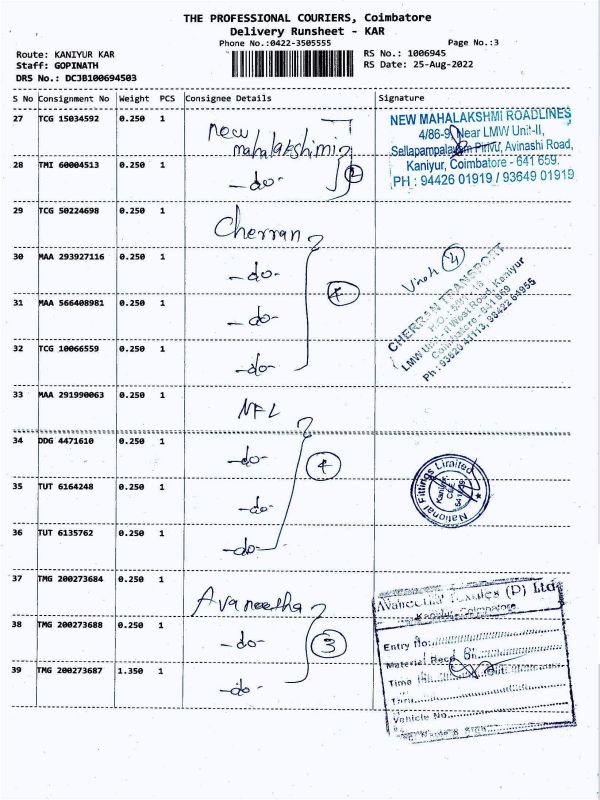 THE PROFESSIONAL COURIERS, Coimbatore
Delivery Runsheet - KAR
Phone No.:0422-3505555
Page No.:3
Route: KANIYUR KAR
RS No.: 1006945
Staff: GOPINATH
RS Date: 25-Aug-2022
DRS No.: DCJB100694503
S No Consignment No Weight PCS Consignee Details Signature
27 TCG 15034592 0.250 1 new mahalakshmi
28 TMI 60004513 0.250 1 -do- 2
NEW MAHALAKSHMI ROADLINES
4/86-9, Near LMW Unit-II,
Sellapampalayam Pirivu, Avinashi Road,
Kaniyur, Coimbatore - 641 659.
PH : 94426 01919 / 93649 01919
29 TCG 50224698 0.250 1 Cherran
30 MAA 293927116 0.250 1 -do-
31 MAA 566408981 0.250 1 -do- 4
32 TCG 10066559 0.250 1 -do-
4
CHERRAN TRANSPORT
LMW Unit - II West Road, Kaniyur
Coimbatore - 641 659
33 MAA 291990063 0.250 1 NFL
34 DDG 4471610 0.250 1 -do- 4
35 TUT 6164248 0.250 1 -do-
36 TUT 6135762 0.250 1 -do-
National Fittings Limited
Kaniyur,
37 TMG 200273684 0.250 1 Avaneetha
38 TMG 200273688 0.250 1 -do- 3
39 TMG 200273687 1.350 1 -do-
(P) Ltd
Kaniyur, Coimbatore.
Entry No:
Material Recd.
Time
Thru
Vehicle No